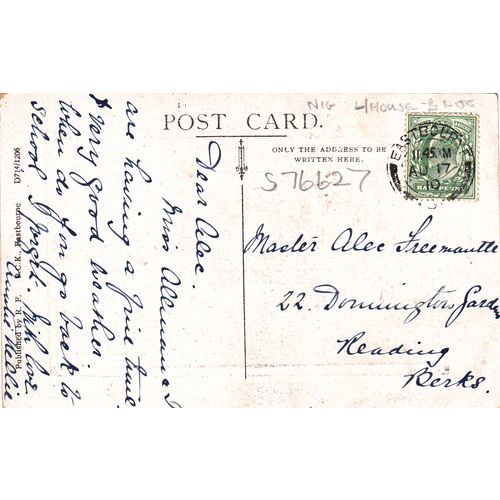 NIG L/HOUSE - B LOTS
POST CARD.
ONLY THE ADDRESS TO BE
WRITTEN HERE.
S76627
EASTBOURNE
11.45 AM
17
HALFPENNY
Dear Alec.
Miss
are having a fine time
& very good weather
When do you go back to
School I forget. Much love
Auntie Nellie
Master Alec Freemantle
22. Donnington Gardens
Reading
Berks.
Published by R. F. Eastbourne
D714/1206